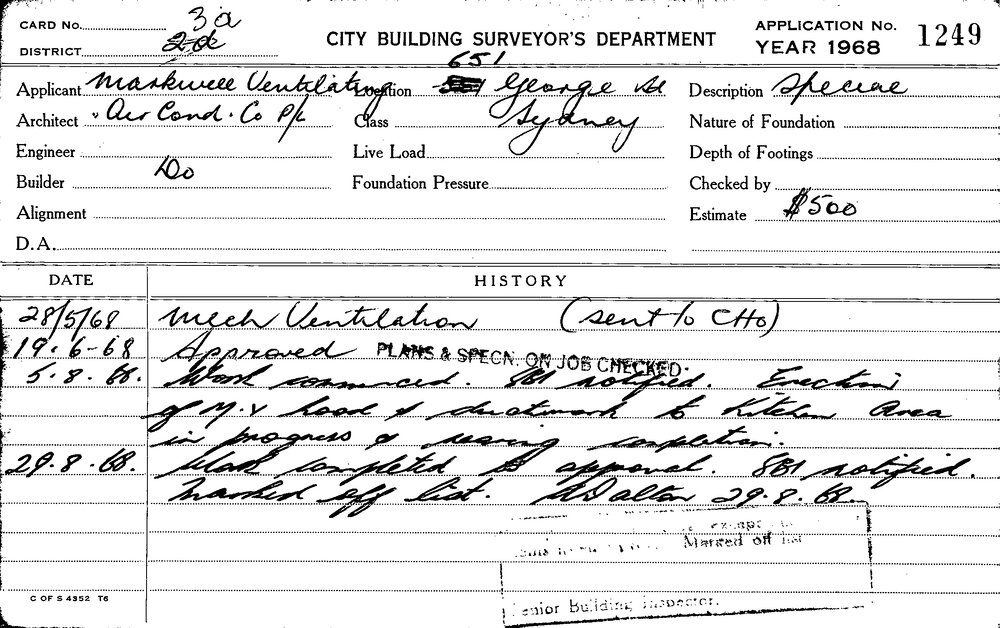 CARD No. 3a
DISTRICT 2d
CITY BUILDING SURVEYOR'S DEPARTMENT
APPLICATION No. 1249
YEAR 1968
Applicant Markwell Ventilating
Location 651 George St
Description Special
Architect " Air Cond. Co P/L
Class Sydney
Nature of Foundation
Engineer
Live Load
Depth of Footings
Builder Do
Foundation Pressure
Checked by
Alignment
Estimate $500
D.A.
DATE HISTORY
28/5/68 Mech Ventilation (sent to CHO)
19.6-68 Approved PLANS & SPECN. ON JOB CHECKED.
5.8.68. Work commenced. SBI notified. Erection
of M.V hood & ductwork to Kitchen Area
in progress & nearing completion.
29.8.68. Work completed to approval. SBI notified.
Marked off list. Dalton 29.8.68
except
Marked off list
Senior Building Inspector.
C OF S 4352 T6